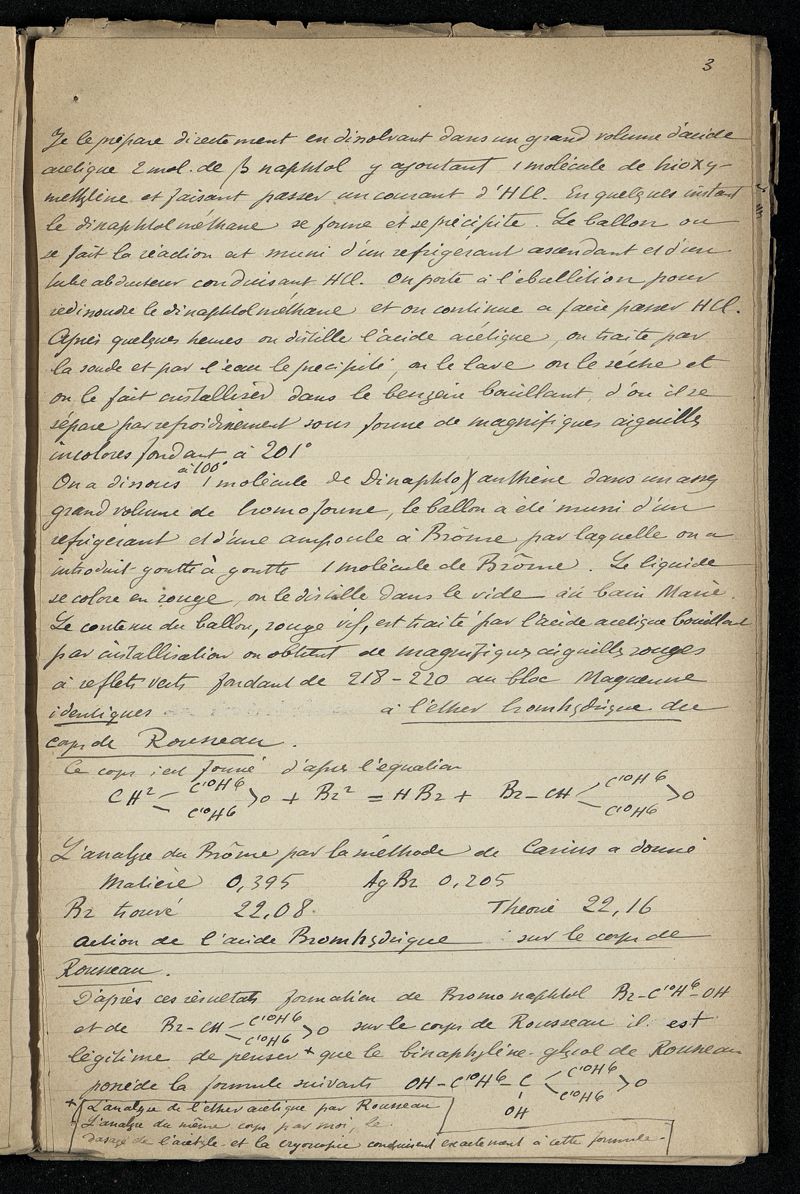 3
Je le prépare directement en dissolvant dans un grand volume d'acide
acétique 2 mol. de β naphtol y ajoutant 1 molécule de trioxy-
méthylène et faisant passer un courant d'HCl. En quelques instant
le dinaphtol méthane se forme et se précipite. Le ballon ou
se fait la réaction est muni d'un réfrigérant ascendant et d'un
tube abducteur conduisant HCl. On porte à l'ébullition pour
redissoudre le dinaphtol méthane et on continue a faire passer HCl.
Après quelques heures on distille l'acide acétique, on traite par
la soude et par l'eau le précipité, on le lave on le sèche et
on le fait cristalliser dans le benzène bouillant, d'ou il se
sépare par refroidissement sous forme de magnifiques aiguilles
incolores fondant à 201°
à 100°
On a dissous 1 molécule de Dinaphtoxanthène dans un assez
grand volume de bromoforme, le ballon a été muni d'un
réfrigérant et d'une ampoule à Brôme par laquelle on a
introduit goutte à goutte 1 molécule de Brôme. Le liquide
se colore en rouge, on le distille dans le vide au bain Marie.
Le contenu du ballon, rouge vif, est traité par l'acide acetique bouillant
par cristallisation on obtient de magnifiques aiguilles rouges
à reflets verts fondant de 218-220 au bloc Maquenne
identiques à l'éther bromhydrique du
corps de Rousseau.
Ce corps s'est formé d'après l'équation
CH² < C¹⁰H⁶ C¹⁰H⁶ > O + Br² = HBr + Br-CH < C¹⁰H⁶ C¹⁰H⁶ > O
L'analyse du Brôme par la méthode de Carius a donné
Matière 0,395 AgBr 0,205
Br trouvé 22,08. Théorie 22,16
Action de l'acide Bromhydrique sur le corps de
Rousseau.
D'après ces résultats formation de Bromonaphtol Br-C¹⁰H⁶-OH
et de Br-CH < C¹⁰H⁶ C¹⁰H⁶ > O sur le corps de Rousseau il est
légitime de penser + que le binaphtylène-glycol de Rousseau
possède la formule suivante OH-C¹⁰H⁶-C < C¹⁰H⁶ C¹⁰H⁶ > O
OH
+ L'analyse de l'éther acétique par Rousseau
L'analyse du même corps par moi, le
dosage de l'acétyle et la cryoscopie conduisent exactement à cette formule.